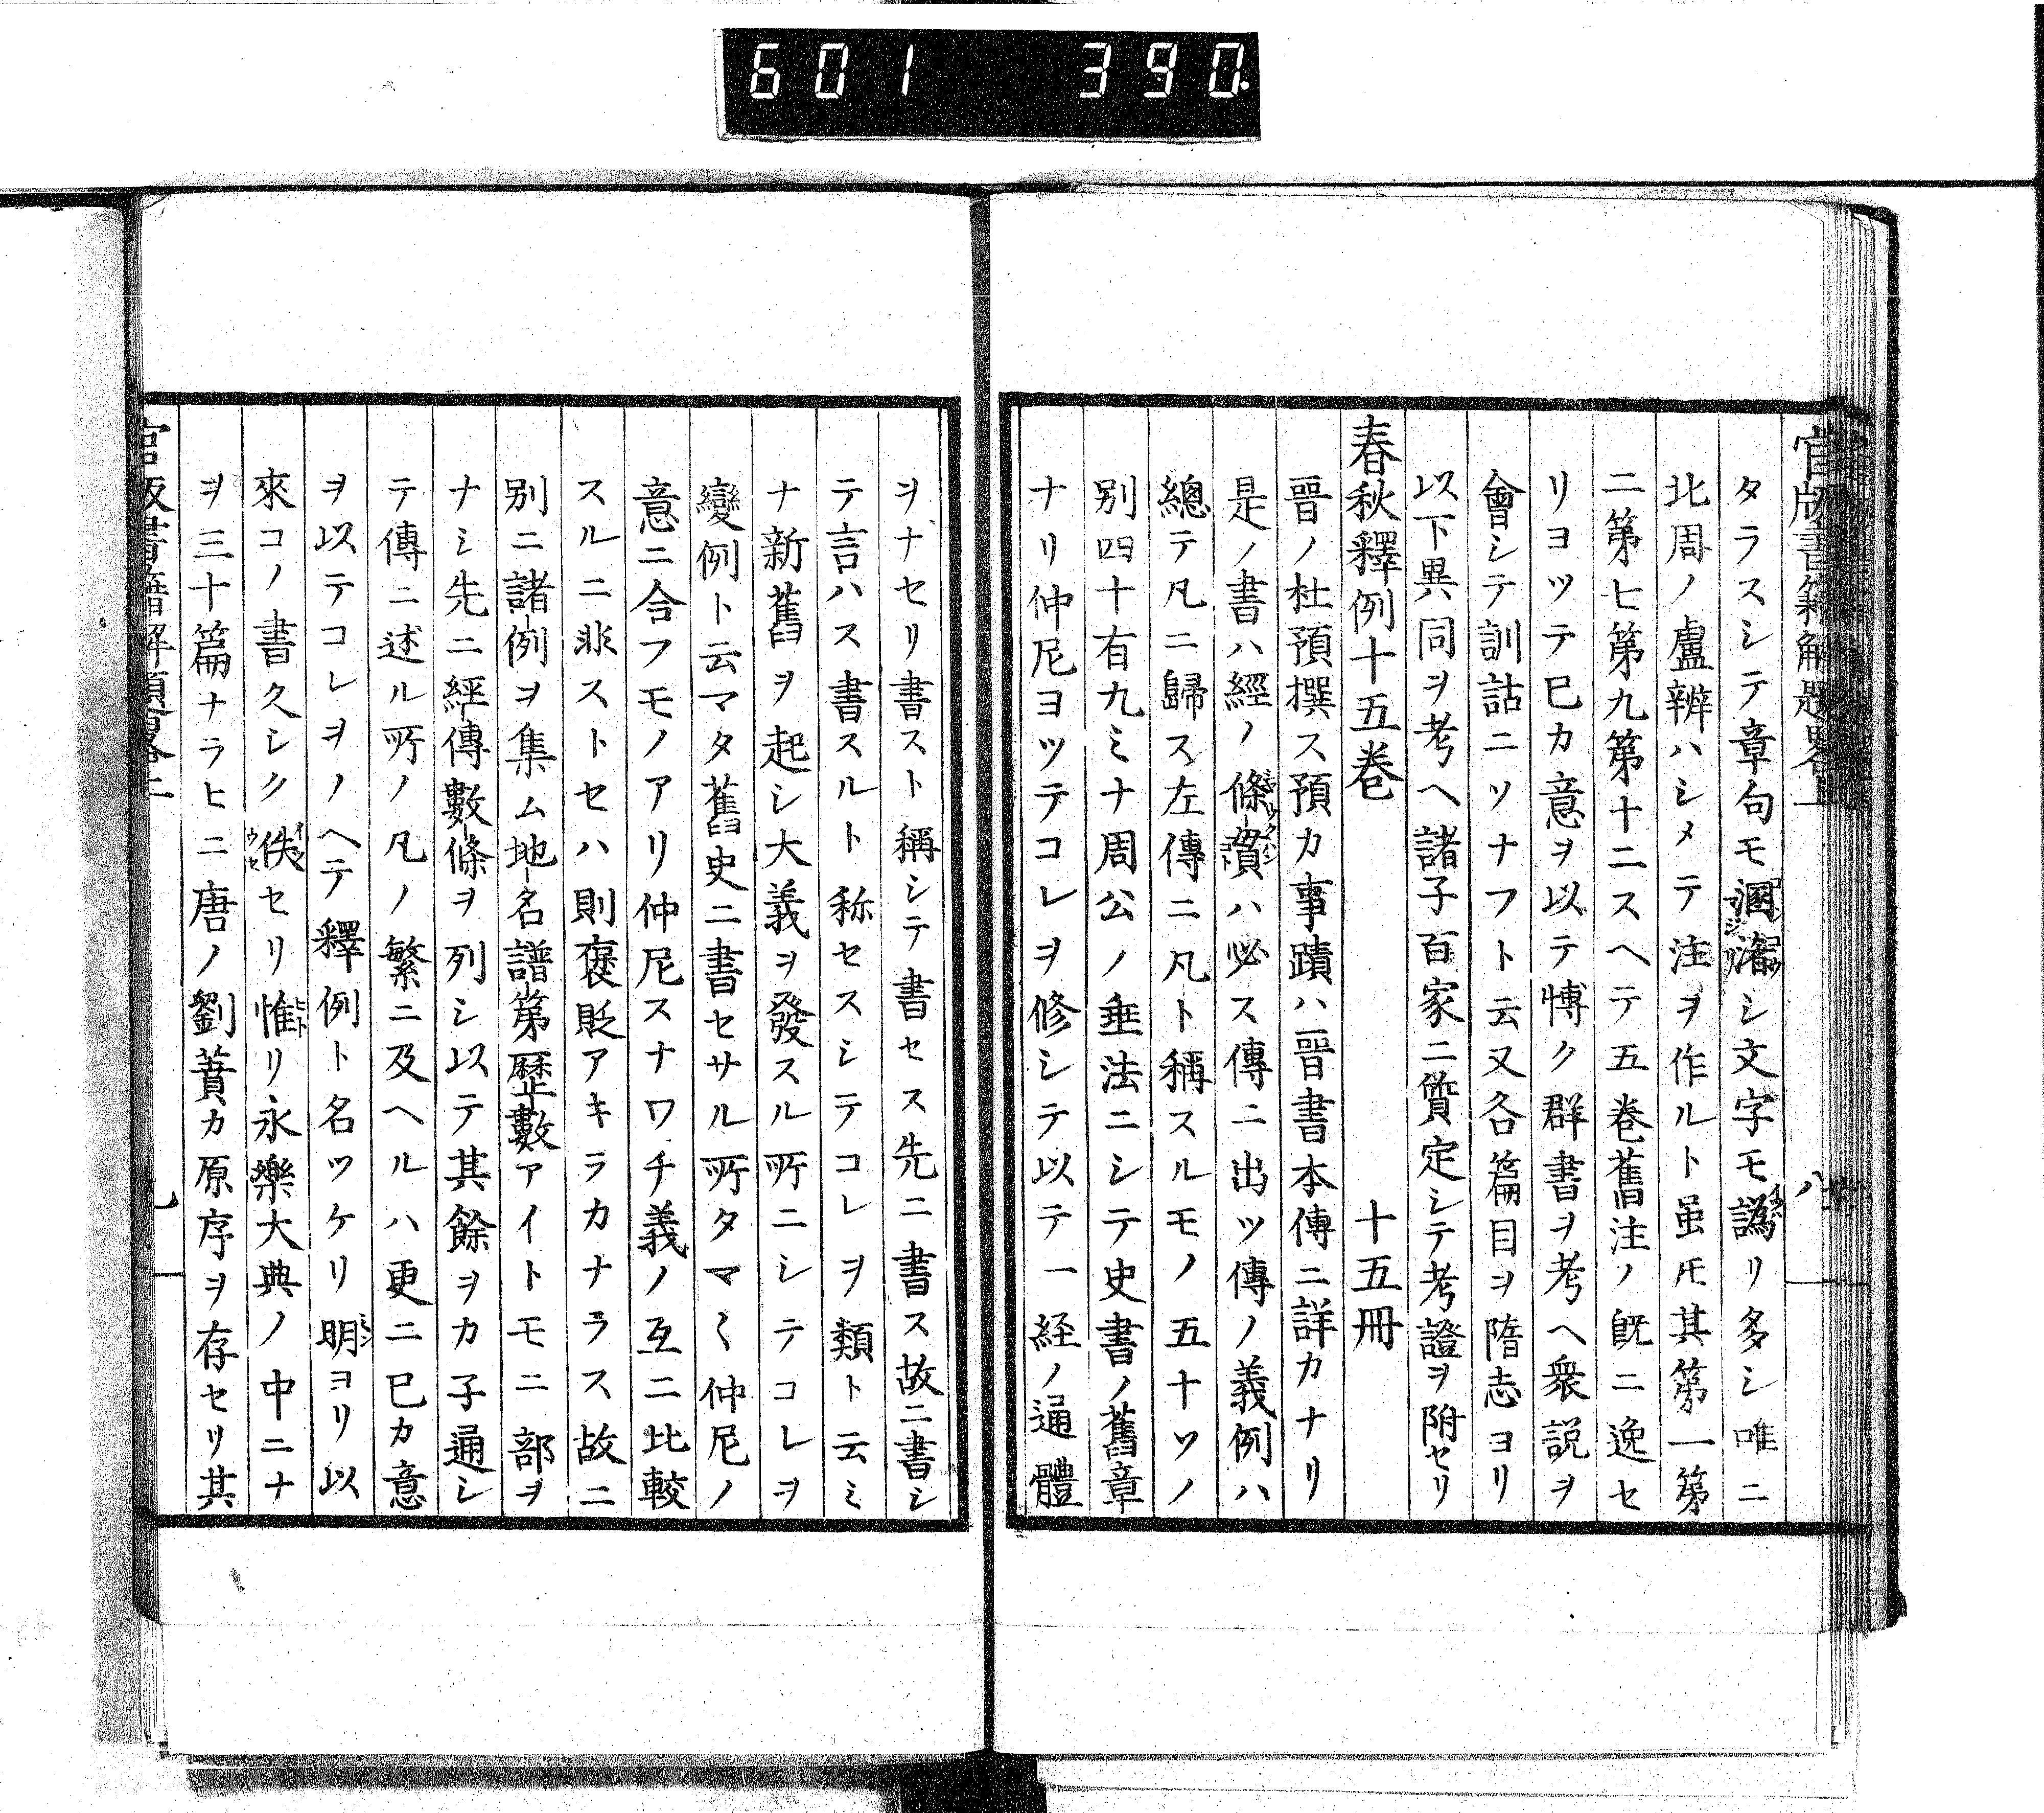 601 390.
官版書籍解題畧上 八
タラスシテ章句モ溷淆シ文字モ譌リ多シ唯ニ
北周ノ盧辨ハシメテ注ヲ作ルト虽𪜈其第一第
二第七第九第十二スヘテ五卷舊注ノ旣ニ逸セ
リヨツテ已カ意ヲ以テ博ク群書ヲ考ヘ衆説ヲ
會シテ訓詁ニソナフト云又各篇目ヲ隋志ヨリ
以下異同ヲ考ヘ諸子百家ニ質定シテ考證ヲ附セリ
春秋釋例十五卷 十五冊
晋ノ杜預撰ス預カ事蹟ハ晋書本傳ニ詳カナリ
是ノ書ハ經ノ條貫ハ必ス傳ニ出ツ傳ノ義例ハ
總テ凡ニ歸ス左傳ニ凡ト稱スルモノ五十ツノ
别四十有九ミナ周公ノ垂法ニシテ史書ノ舊章
ナリ仲尼ヨツテコレヲ修シテ以テ一経ノ通體
ヲナセリ書スト稱シテ書セス先ニ書ス故ニ書シ
テ言ハス書スルト称セスシテコレヲ類ト云ミ
ナ新舊ヲ起シ大義ヲ發スル所ニシテコレヲ
變例ト云マタ舊史ニ書セサル所タマ〱仲尼ノ
意ニ合フモノアリ仲尼スナワチ義ノ互ニ比較
スルニ非ストセハ則褒貶アキラカナラス故ニ
别ニ諸例ヲ集ム地名譜第歷數アイトモニ部ヲ
ナシ先ニ經傳數條ヲ列シ以テ其餘ヲカ子通シ
テ傳ニ述ル所ノ凡ノ繁ニ及ヘルハ更ニ已カ意
ヲ以テコレヲノヘテ釋例ト名ツケリ明ヨリ以
來コノ書久シク佚セリ惟リ永樂大典ノ中ニナ
ヲ三十篇ナラヒニ唐ノ劉蕡カ原序ヲ存セリ其